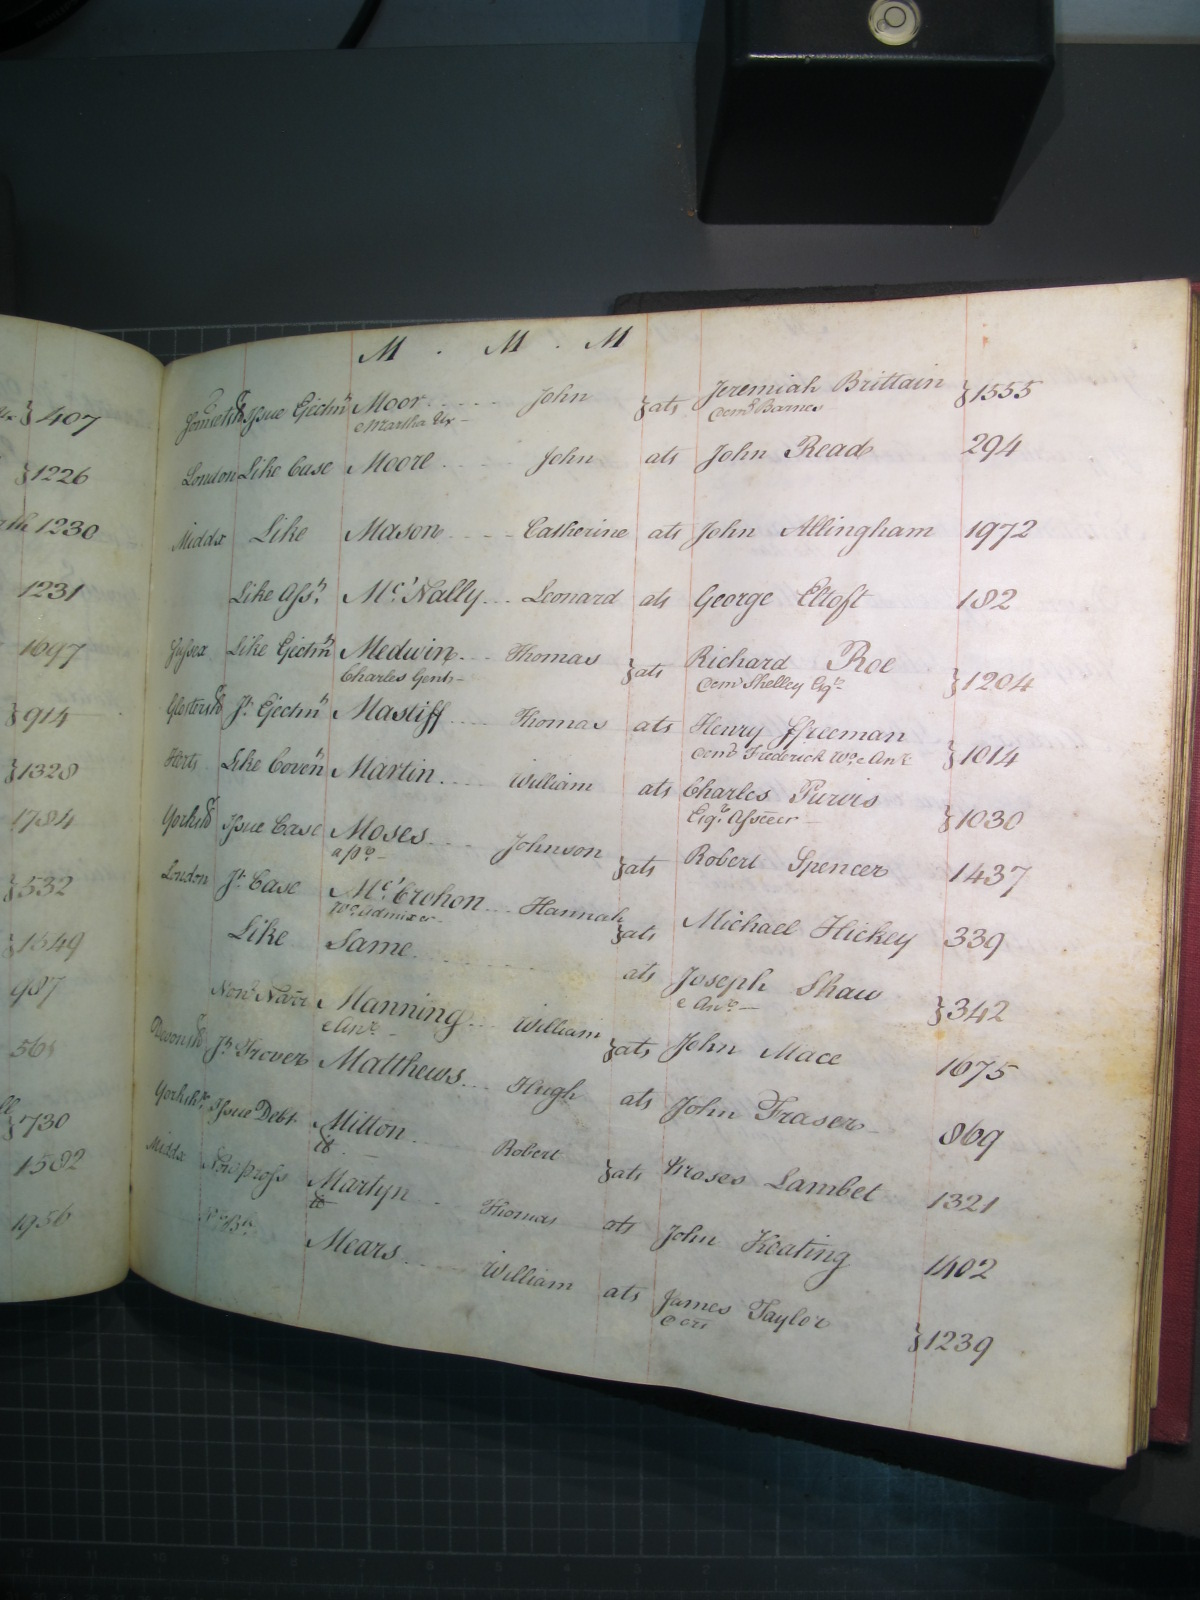 M . M . M
407
1226
1230
1231
1697
}914
}1328
1784
}532
}1549
987
561
}730
1582
1956
Issue Ejectmt Moor John }ats Jeremiah Brittain }1555
Martha Ux demd Barnes
London Like Case Moore John ats John Read 294
Middx Like Mason Catherine ats John Allingham 1972
Like Asst Mc.Nally Leonard ats George Eltoft 182
Sussex Like Ejectmt Medwin Thomas }ats Richard Roe }1204
Charles Gents demd Shelley Esqr
Glostersh Jt Ejectmt Mastiff Thomas ats Henry Ffreeman }1014
demd Frederick Wm & Anr
Herts Like Covent Martin William ats Charles Purvis }1030
Esqr Assee
Yorksh Issue Case Moses Johnson }ats Robert Spencer 1437
London Jt Case Mc.Crohon Hannah }ats Michael Hickey 339
Wo admixr
Like Same ats Joseph Shaw }342
& Anr
Manning William }ats John Mace 1675
& Anr
Devonsh Jt Trover Matthews Hugh ats John Fraser 869
Yorksh Issue Debt Mitton Robert }ats Moses Lambet 1321
Middx Non pross Martyn Thomas ats John Keating 1402
Mears William ats James Taylor }1239